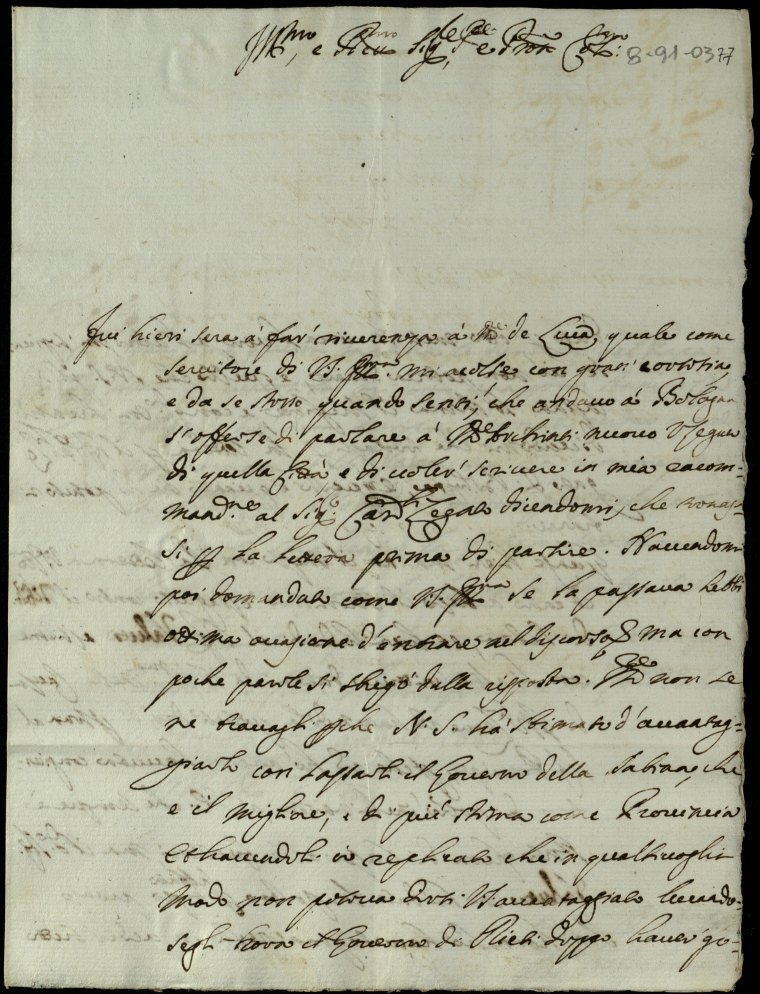 Ill.mo, e R.mo Sig.re, e Pron Col.mo: 8-91-0377
Fui hieri sera à far riverenza à M.r de Luca, quale come
servitore di V.S. Ill.ma mi accolse con gran cortesia,
e da se stesso quando sentì, che andavo à Bologna
s'offerse di parlare à nuovo Vlegato
di quella Città e di voler scrivere in mia racom-
mand.ne al Sig.r Card.l Legato dicendomi, che
si p la lettera prima di partire. Havendomi
poi domandato come V.S. Ill.ma se la passava hebbi
ottima occasione d'entrare nel discorso, ma con
poche parole si sbrigò dalla risposta. non se
ne travagli perche N. S. hà stimato d'avantag-
giarlo con lassarli il Governo della Sabina, che
e il migliore, e di più stima come Provincia
Et havendoli io replicato che in qualsivoglia
modo non poteva dirsi Vavantaggiato levando-
segli hora il Governo di Rieti doppo haver go-